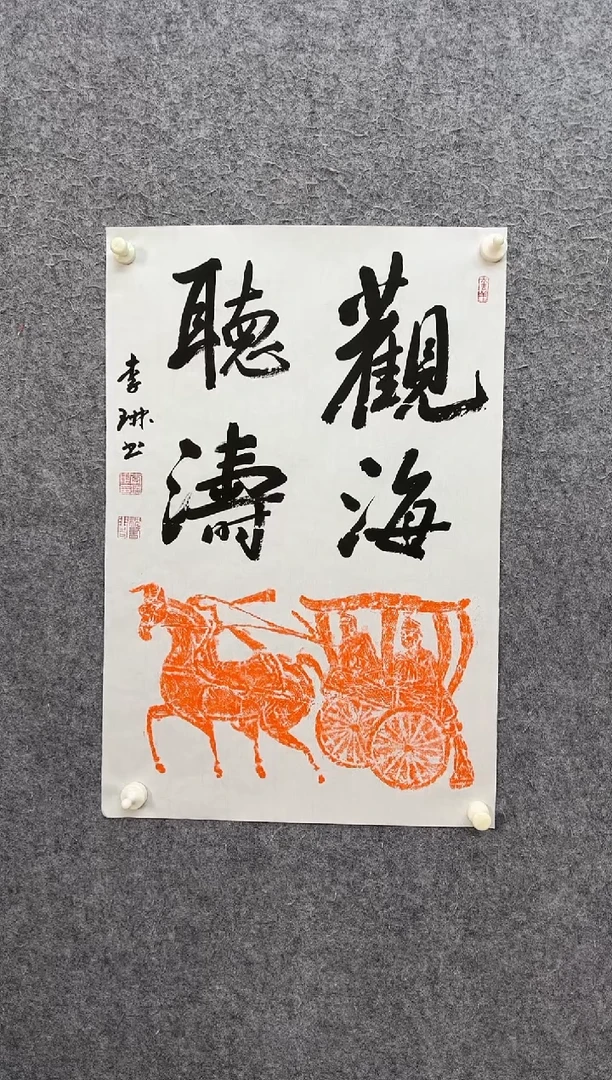 觀海
聽濤
李琳书